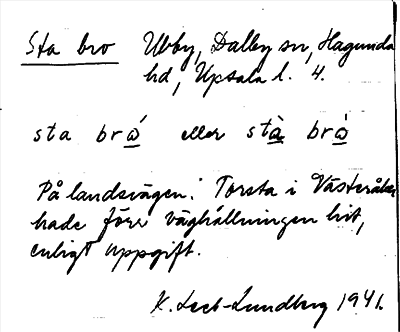 Sta bro Ubby, Dalby sn, Hagunda
hd, Upsala l. 4.
sta brǫ́ eller stå̱ brǫ̊́
På landsvägen. Torsta i Västeråker
hade förr väghållningen hit,
enligt uppgift.
K. Lech-Lundberg 1941.